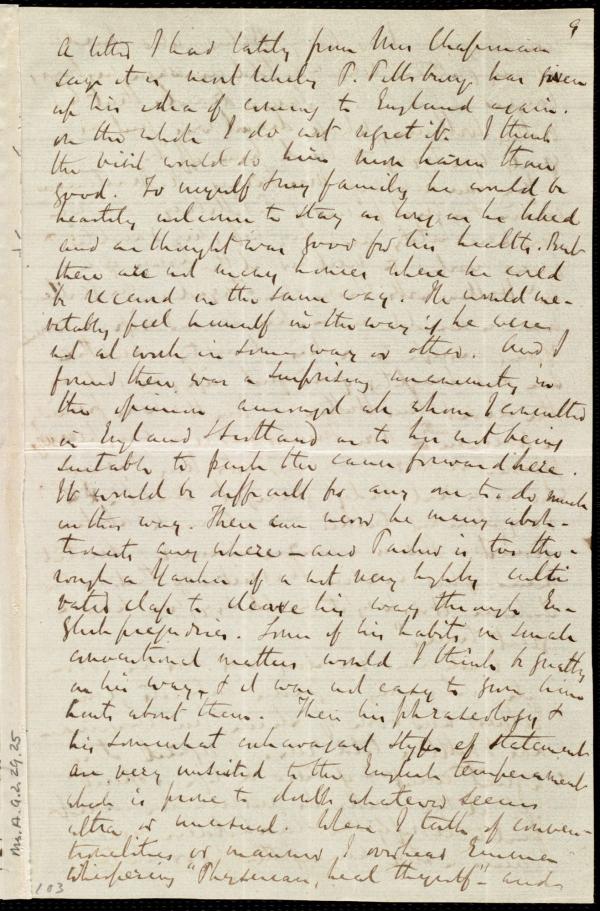 9
A letter I had lately from Mrs Chapman
says it is most likely P. Pillsbury has given
up his idea of coming to England again.
on the whole I do not regret it. I think
the visit would do him more harm than
good. To myself & my family he would be
heartily welcome to stay as long as he liked
and as thought was good for his health. But
there are not many houses where he could
be received in the same way. He would ine-
vitably feel himself in the way if he were
not at work in some way or other. And I
found there was a surprising unanimity in
the opinion amongst all whom I consulted
in England & Scotland as to his not being
suitable to push the cause forward here.
It would be difficult for any one to do much
in this way. There can never be many aboli-
tionists any where – and Parker is too tho-
rough a Yankee of a not very highly culti
vated class to cleave his way through En-
glish prejudices. Some of his habits in small
conventional matters would I think be greatly
in his way, & it was not easy to give him
hints about them. Then his phraseology &
his somewhat extravagant style of statement
are very unsuited to the English temperament
which is prone to doubt whatever seems
ultra or unusual. When I talk of conven-
tionalities or manners I overhear Emma
whispering "Physician, heal thyself" – and
Ms. A. 9. 2. 29. 25
103